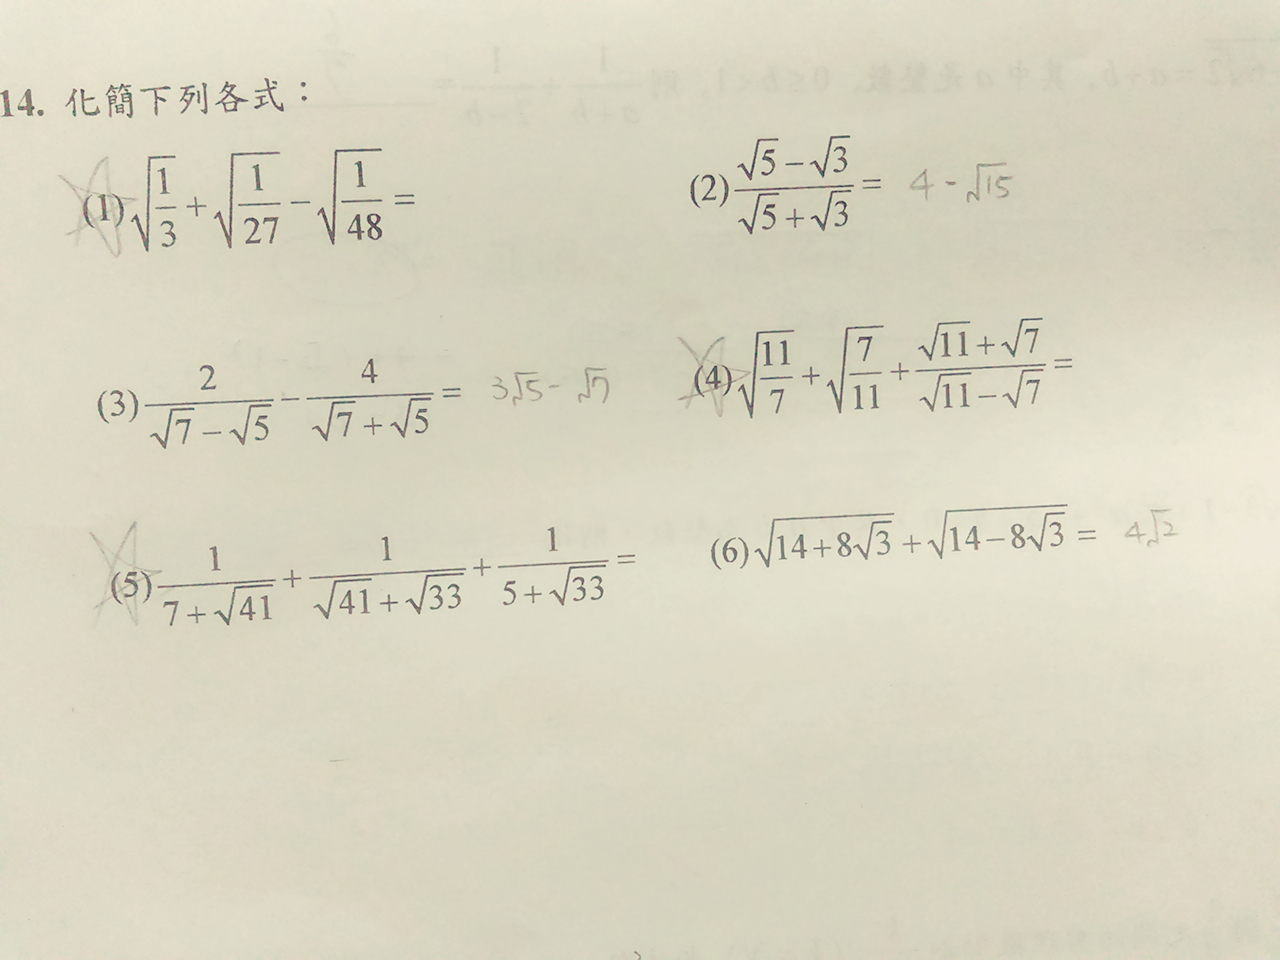 14. 化簡下列各式：
(1) √(1/3) + √(1/27) − √(1/48) =
(2) (√5 − √3)/(√5 + √3) = 4 - √15
(3) 2/(√7 − √5) − 4/(√7 + √5) = 3√5 - √7
(4) √(11/7) + √(7/11) + (√11 + √7)/(√11 − √7) =
(5) 1/(7 + √41) + 1/(√41 + √33) + 1/(5 + √33) =
(6) √(14 + 8√3) + √(14 − 8√3) = 4√2